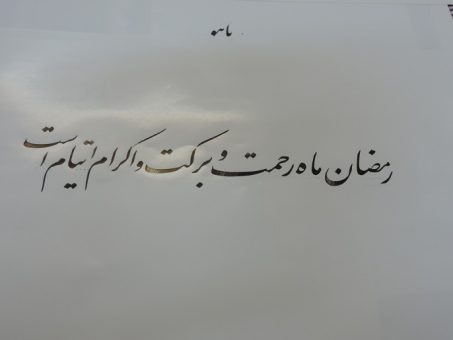 رمضان ماه رحمت و برکت و اکرام ایتام است